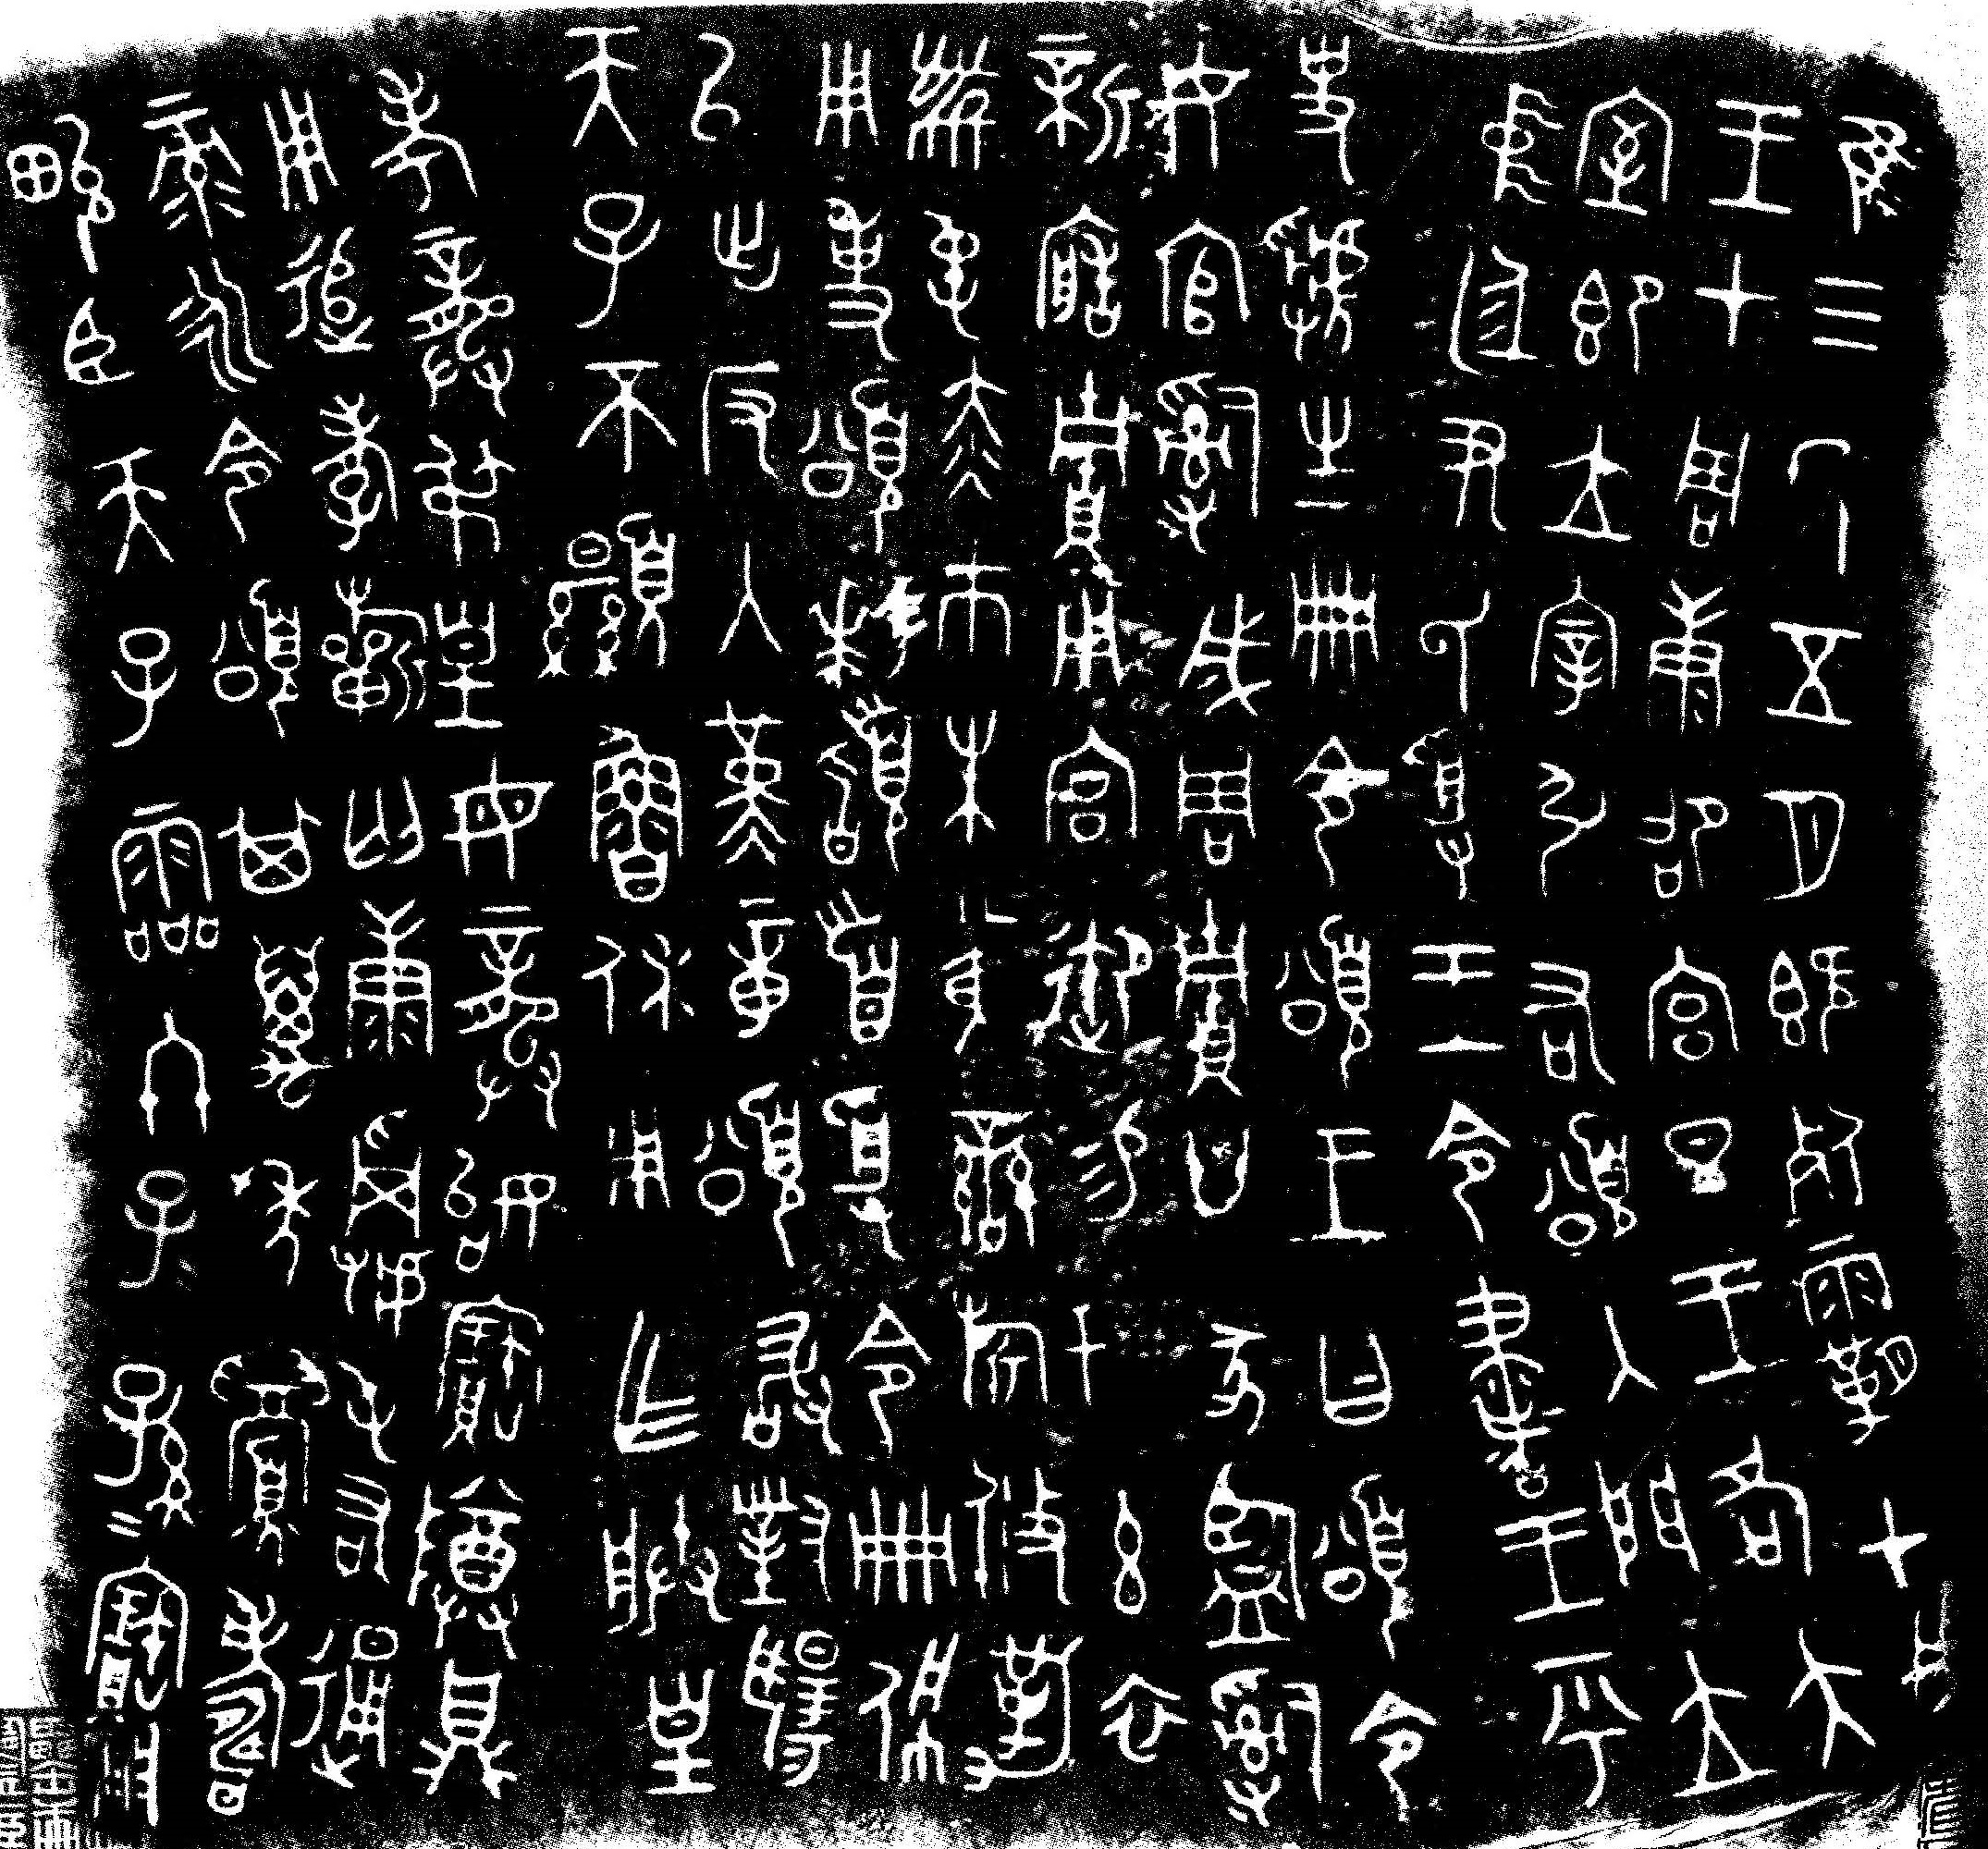 隹三年五月既死霸甲戌
王才周康卲宮旦王各大
室即立宰引右頌入門立
中廷尹氏受王令書王乎
史虢生冊令頌王曰頌令
女官𤔲成周貯廿家監𤔲
新造貯用宮御易女玄衣
黹屯赤巿朱黃䜌旂攸勒
用事頌拜稽首受令冊佩
以出反入堇章頌敢對揚
天子不顯魯休用乍朕皇
考龔弔皇母龔姒寶尊簋
用追孝祈匄康𢖻屯右通
彔永令頌其萬年眉壽
畯臣天子霝冬子孫=寶用